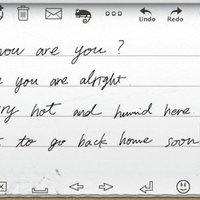 Undo Redo
how are you ?
you are alright.
hot and humid here
to go back home soon